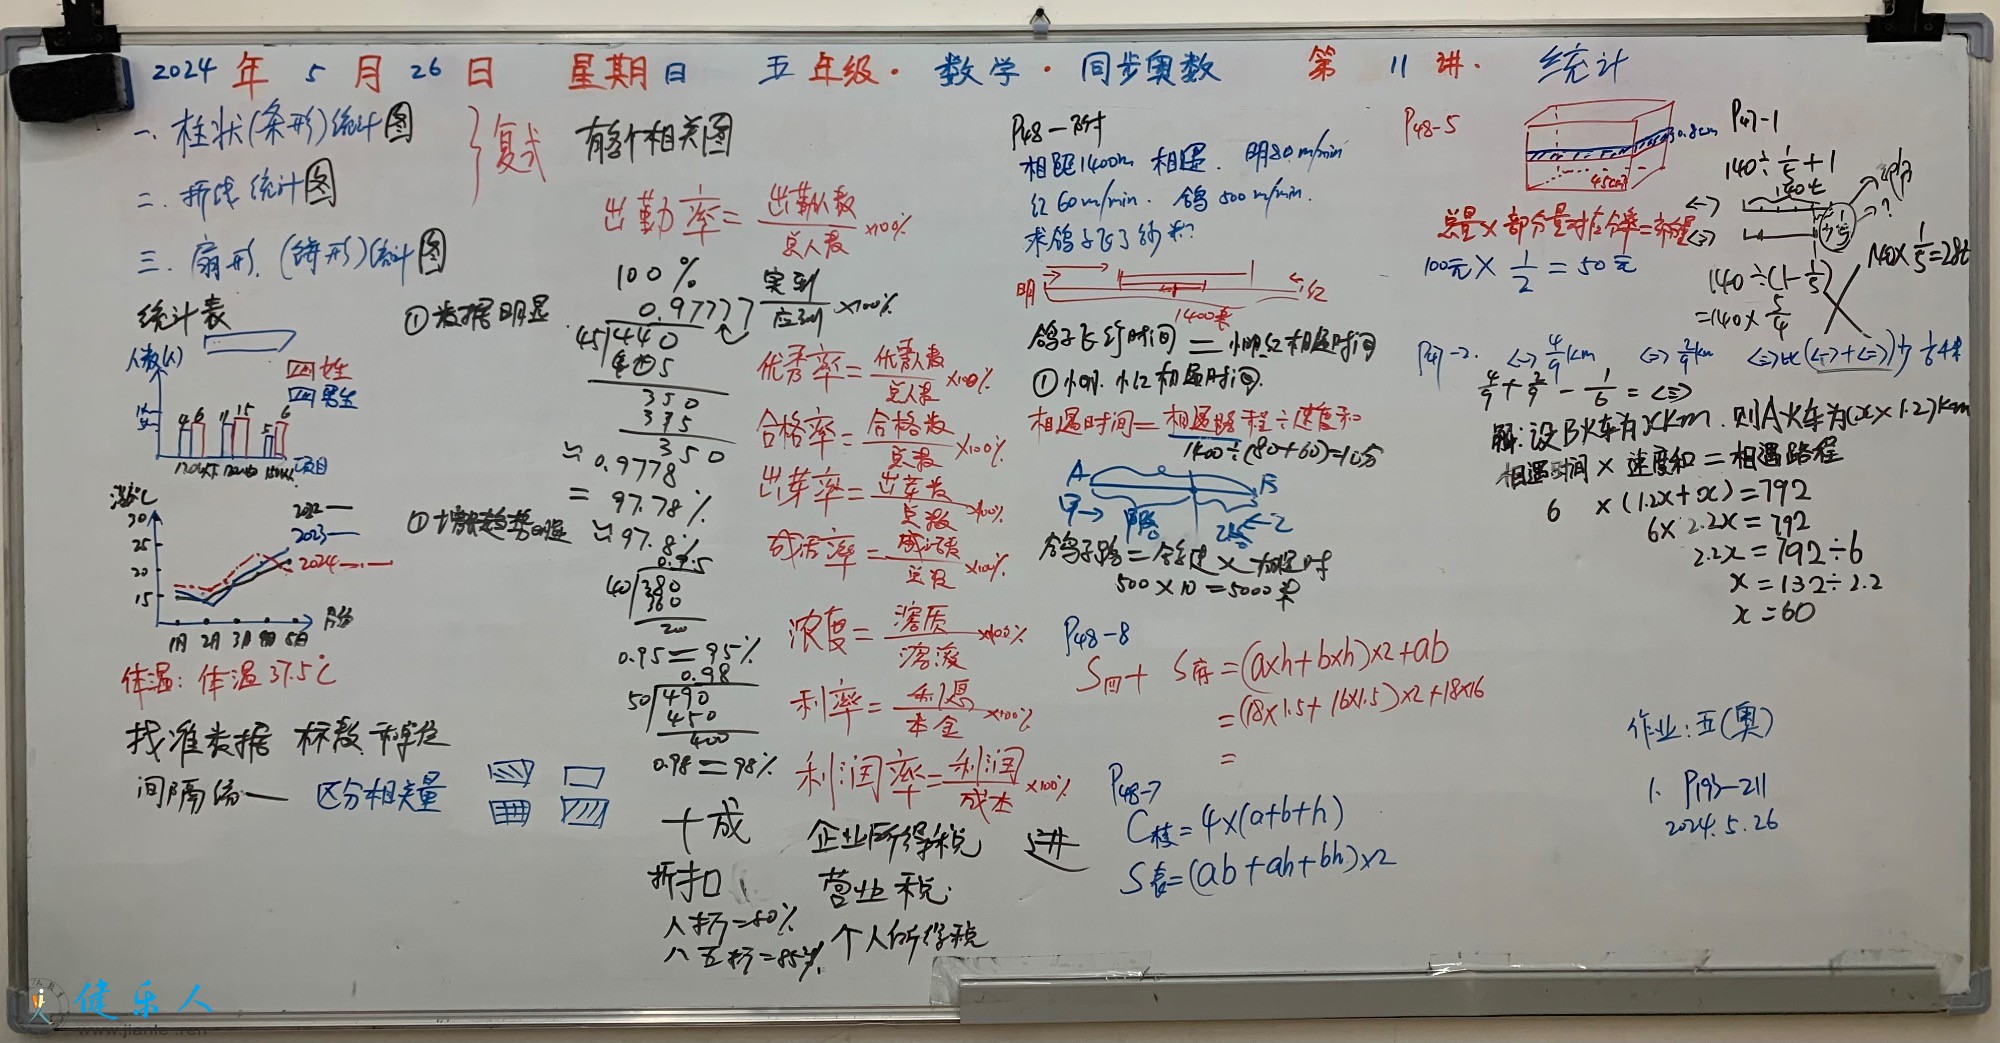 2024年5月26日 星期日 五年级·数学·同步奥数 第11讲·统计
一、柱状(条形)统计图
二、折线统计图
三、扇形、(饼形)统计图
}复式
有多个相关图
统计表
①数据明显
人数(人)
女生
男生
4 6 11 15 5 6
项目
温度℃
30
25
20
15
2022
2023
2024
1月 2月 3月 4月 5月
月份
体温：体温37.5℃
找准数据 标数 单位
间隔统一 区分相关量
出勤率=出勤人数/总人数×100%
100%
0.9777
45 440
405
350
315
350
实到/应到×100%
≈0.9778
=97.78%
≈97.8%
0.95
40 380
360
200
0.95=95%
0.98
50 490
450
400
0.98=98%
十成
折扣
八折=80%
八五折=85%
优秀率=优秀人数/总人数×100%
合格率=合格数/总数×100%
出芽率=出芽数/总数×100%
成活率=成活数/总数×100%
浓度=溶质/溶液×100%
利率=利息/本金×100%
利润率=利润/成本×100%
企业所得税
营业税
个人所得税
P48-附
相距1400m 相遇. 明80m/min
红60m/min. 鸽500m/min.
求鸽子飞了多少米?
明 红
1400米
鸽子飞行时间=小明小红相遇时间
①小明、小红相遇时间.
相遇时间=相遇路程÷速度和
1400÷(80+60)=10分
A B
甲→ ←乙
鸽子路=鸽速×相遇时
500×10=5000米
P48-8
S四+S底=(a×h+b×h)×2+ab
=(18×1.5+16×1.5)×2+18×16
=
P48-7
C棱=4×(a+b+h)
S表=(ab+ah+bh)×2
P48-5
0.8cm
45cm²
总量×部分量对应分率=部分量
100元×1/2=50元
P47-1
140÷1/5+1
140t
<一>
<二>
140×1/5=28t
140÷(1-1/5)
=140×5/4
P47-2. <一>4/9km <二>2/9km <三>比(<一>+<二>)少1/6千米
4/9+2/9-1/6=<三>
解:设B火车为xkm.则A火车为(x×1.2)km
相遇时间×速度和=相遇路程
6×(1.2x+x)=792
6×2.2x=792
2.2x=792÷6
x=132÷2.2
x=60
作业:五(奥)
1. P193-211
2024.5.26
健乐人